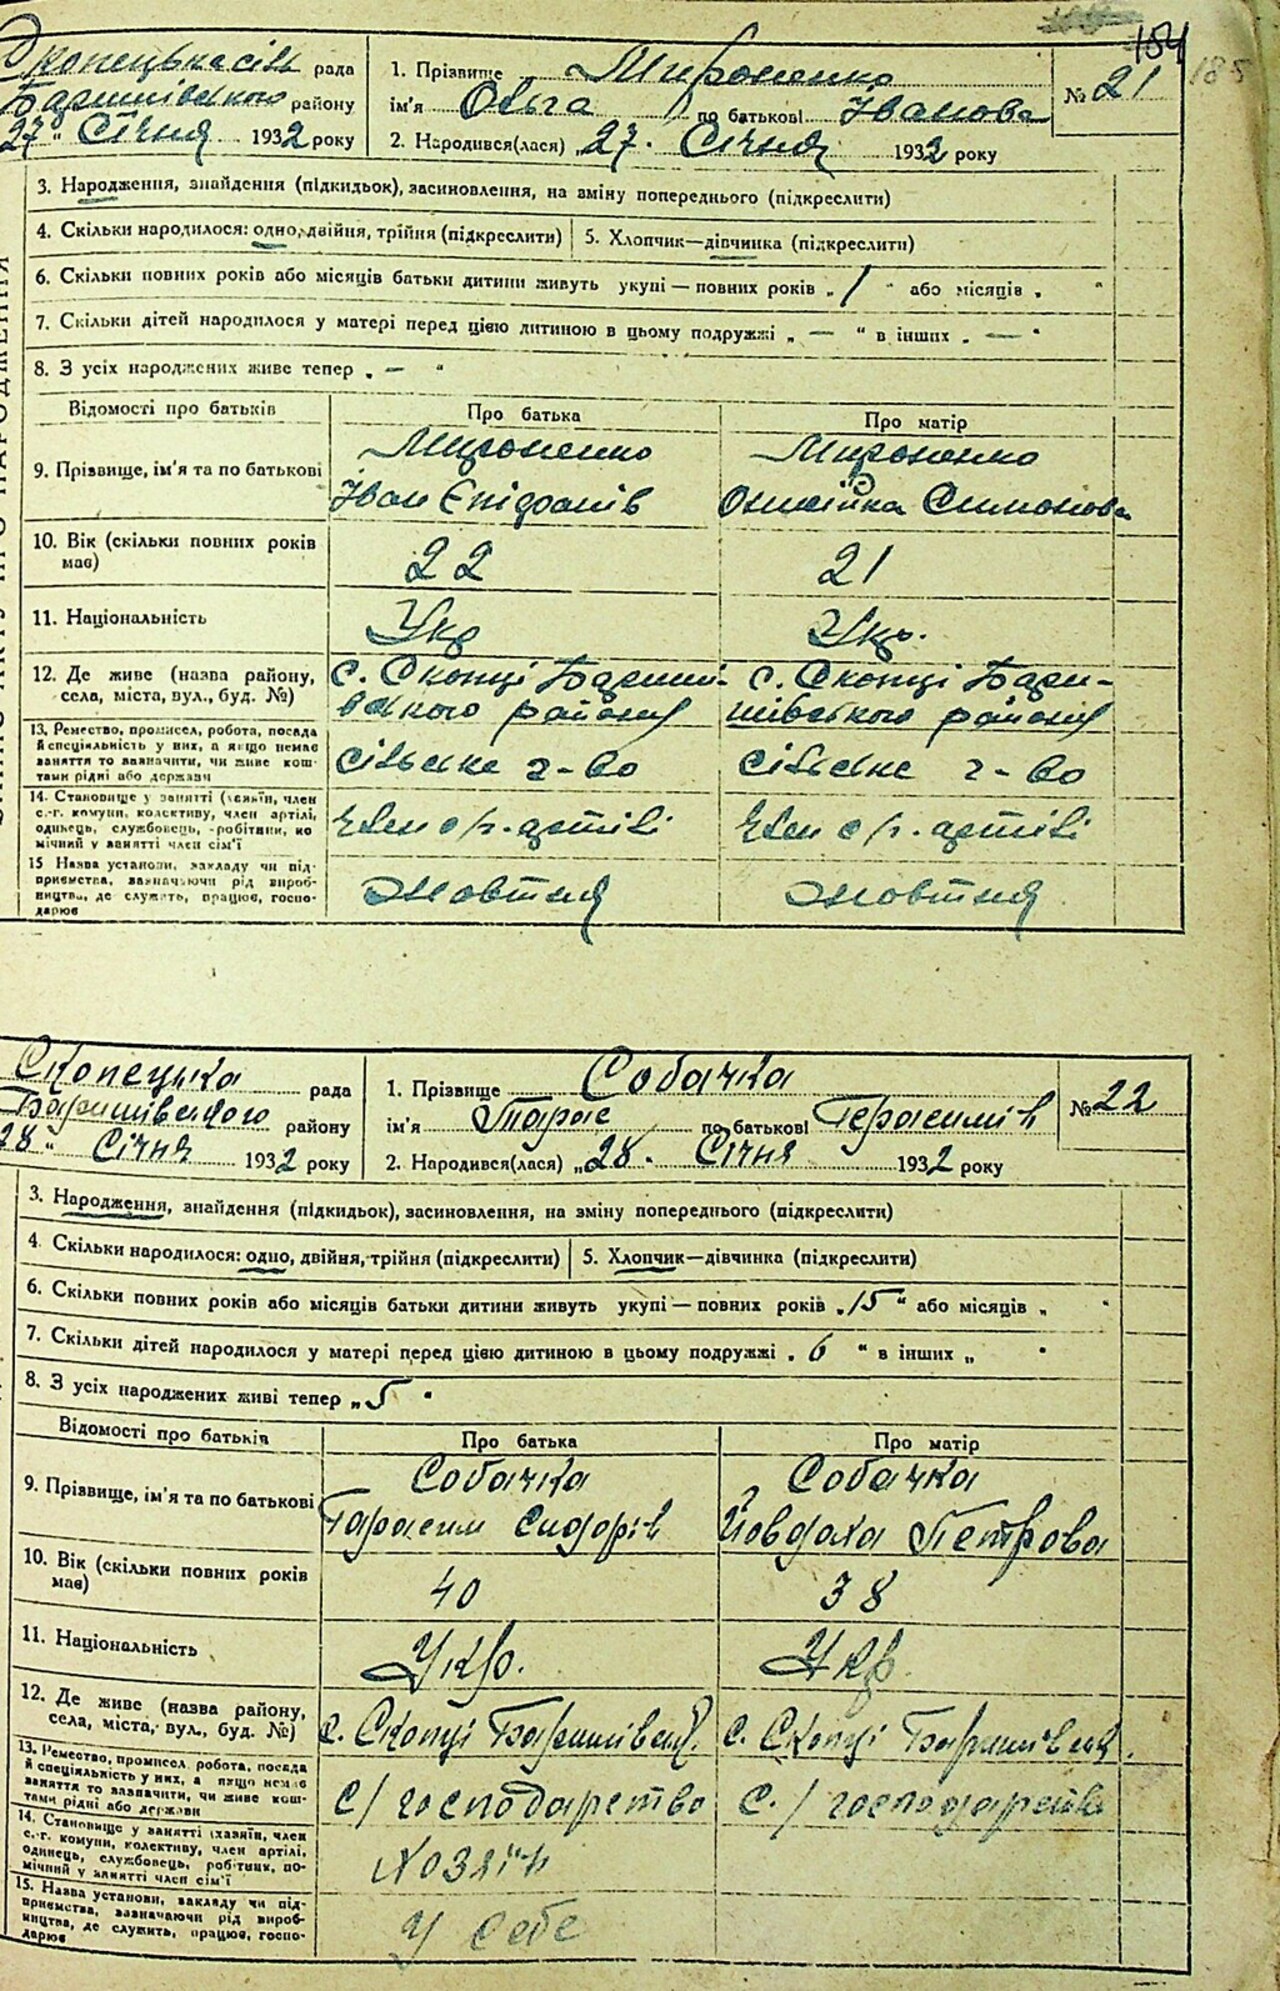 184
185
Скопецька сіль рада
Баришівського району
27 " Січня 1932 року
1. Прізвище Мироненко
ім'я Ольга по батькові Іванова
2. Народився(лася) „27. Січня 1932 року
№ 21
3. Народження, знайдення (підкидьок), засиновлення, на зміну попереднього (підкреслити)
4. Скільки народилося: одно, двійня, трійня (підкреслити) 5. Хлопчик—дівчинка (підкреслити)
6. Скільки повних років або місяців батьки дитини живуть укупі — повних років „ 1 " або місяців „ "
7. Скільки дітей народилося у матері перед цією дитиною в цьому подружжі „ — " в інших „ — "
8. З усіх народжених живе тепер „ — "
Відомості про батьків Про батька Про матір
9. Прізвище, ім'я та по батькові
Мироненко
Іван Єпіфанів
Мироненко
Симонова
10. Вік (скільки повних років
має)
22 21
11. Національність Укр Укр.
12. Де живе (назва району,
села, міста, вул., буд. №)
с. Скопці Бариші-
вского району
с. Скопці Бари-
шівського району
13. Ремество, промисел, робота, посада
й спеціяльність у них, а якщо немає
заняття то зазначити, чи живе кош-
тами рідні або держави
сільське г-во сільське г-во
14. Становище у занятті (хазяїн, член
с.-г. комуни, колективу, член артілі,
одинець, службовець, робітник, по
мічний у занятті член сім'ї
член с/г. артілі член с/г. артілі
15 Назва установи, закладу чи під-
приємства, зазначаючи рід вироб-
ництва, де служить, працює, госпо-
дарює
Жовтня Жовтня
Скопецька рада
Баришівського району
28 " Січня 1932 року
1. Прізвище Собачка
ім'я Тарас по батькові Герасимів
2. Народився(лася) „28. Січня 1932 року
№ 22
3. Народження, знайдення (підкидьок), засиновлення, на зміну попереднього (підкреслити)
4. Скільки народилося: одно, двійня, трійня (підкреслити) 5. Хлопчик—дівчинка (підкреслити)
6. Скільки повних років або місяців батьки дитини живуть укупі — повних років „15" або місяців „ "
7. Скільки дітей народилося у матері перед цією дитиною в цьому подружжі „ 6 " в інших „ "
8. З усіх народжених живі тепер „ 5 "
Відомості про батьків Про батька Про матір
9. Прізвище, ім'я та по батькові
Собачка
Гарасим Сидорів
Собачка
Йовдоха Петрова
10. Вік (скільки повних років
має)
40 38
11. Національність Укр. Укр.
12. Де живе (назва району,
села, міста, вул., буд. №)
с. Скопці Баришівськ. с. Скопці Баришівськ.
13. Ремество, промисел робота, посада
й спеціяльність у них, а якщо немає
заняття то зазначити, чи живе кош-
тами рідні або держави
с/господарство с./господарство
14. Становище у занятті (хазяїн, член
с.-г. комуни, колективу, член артілі,
одинець, службовець, робітник, по-
мічний у занятті член сім'ї
хозяїн
15. Назва установи, закладу чи під-
приємства, зазначаючи рід вироб-
ництва, де служить, працює, госпо-
дарює
у себе